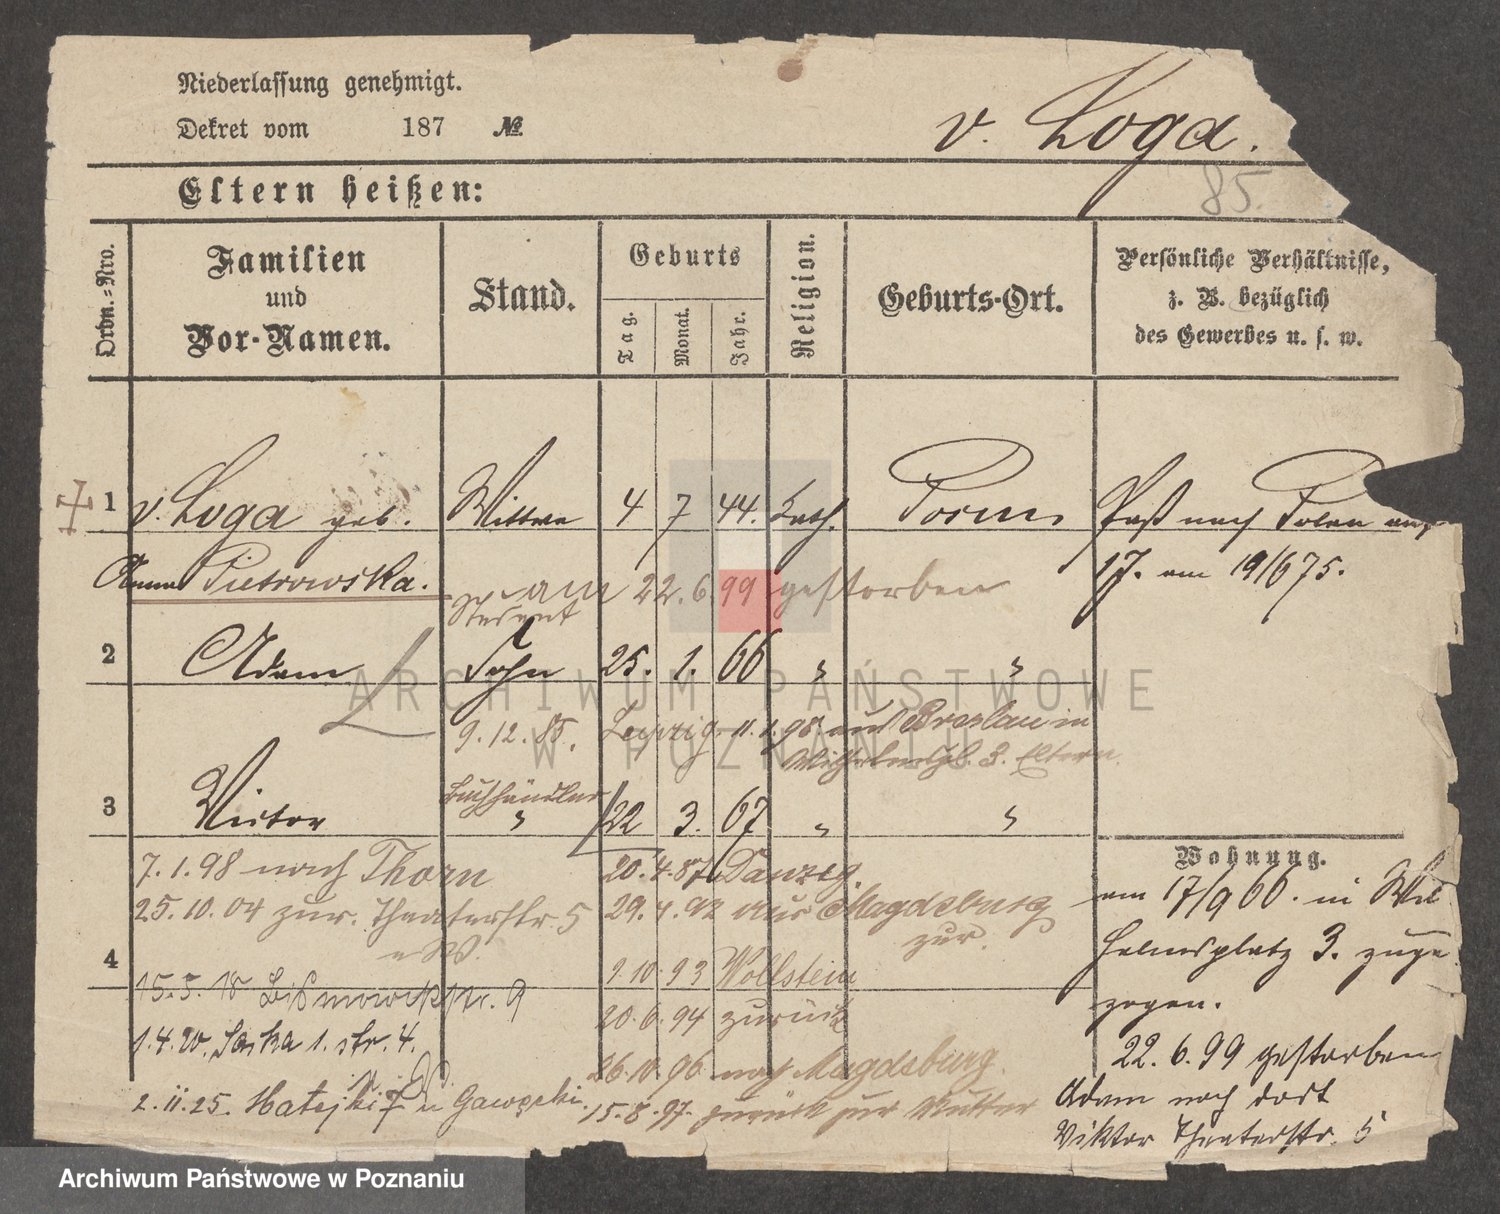 Niederlassung genehmigt.
Dekret vom 187 №
v. Loga.
85.
Eltern heißen:
Ordn.-Nro.
Familien
und
Vor-Namen.
Stand.
Geburts
Tag.
Monat.
Jahr.
Religion.
Geburts-Ort.
Persönliche Verhältnisse,
z. B. bezüglich
des Gewerbes u. s. w.
1 v. Loga geb. Wittwe 4 7 44. kath. Posen Paß nach Polen
Pietrowska. 17. am 19/6 75.
am 22.6.99 gestorben
Student
2 Adam Sohn 25. 1. 66 " "
9.12.85. Leipzig 11.1.98 aus Breslau in
3. Eltern.
Buchhändler
3 Victor " 22 3. 67 " "
Wohnung.
7.1.98 nach Thorn
20.4.87 Danzig
am 17/9 66. in Wil
25.10.04 zur. Theaterstr. 5
29.4.92 aus Magdeburg
zur.
helmsplatz 3. zuge
4
9.10.93 Wollstein
zogen.
15.5.18 Bismarckstr. 9
20.6.94 zurück
1.4.20. Säska 1. str. 4.
22.6.99 gestorben
26.10.96 nach Magdeburg.
Adam nach dort
2.11.25. Matejki 7 u
15.8.97. zurück zur Mutter
Viktor Theaterstr. 5
ARCHIWUM PAŃSTWOWE
W POZNANIU
Archiwum Państwowe w Poznaniu